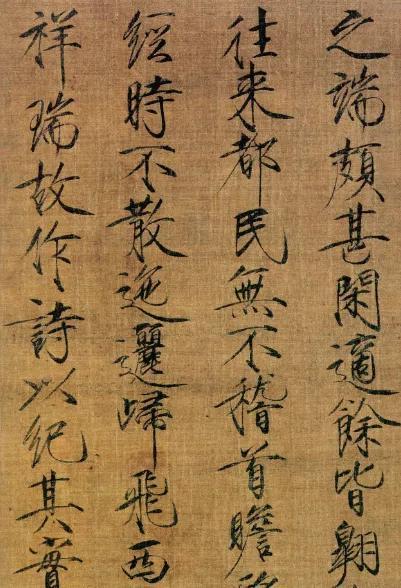 之端頗甚閑適餘皆翱
往来都民無不稽首瞻
經時不散迤邐歸飛西
祥瑞故作詩以紀其實